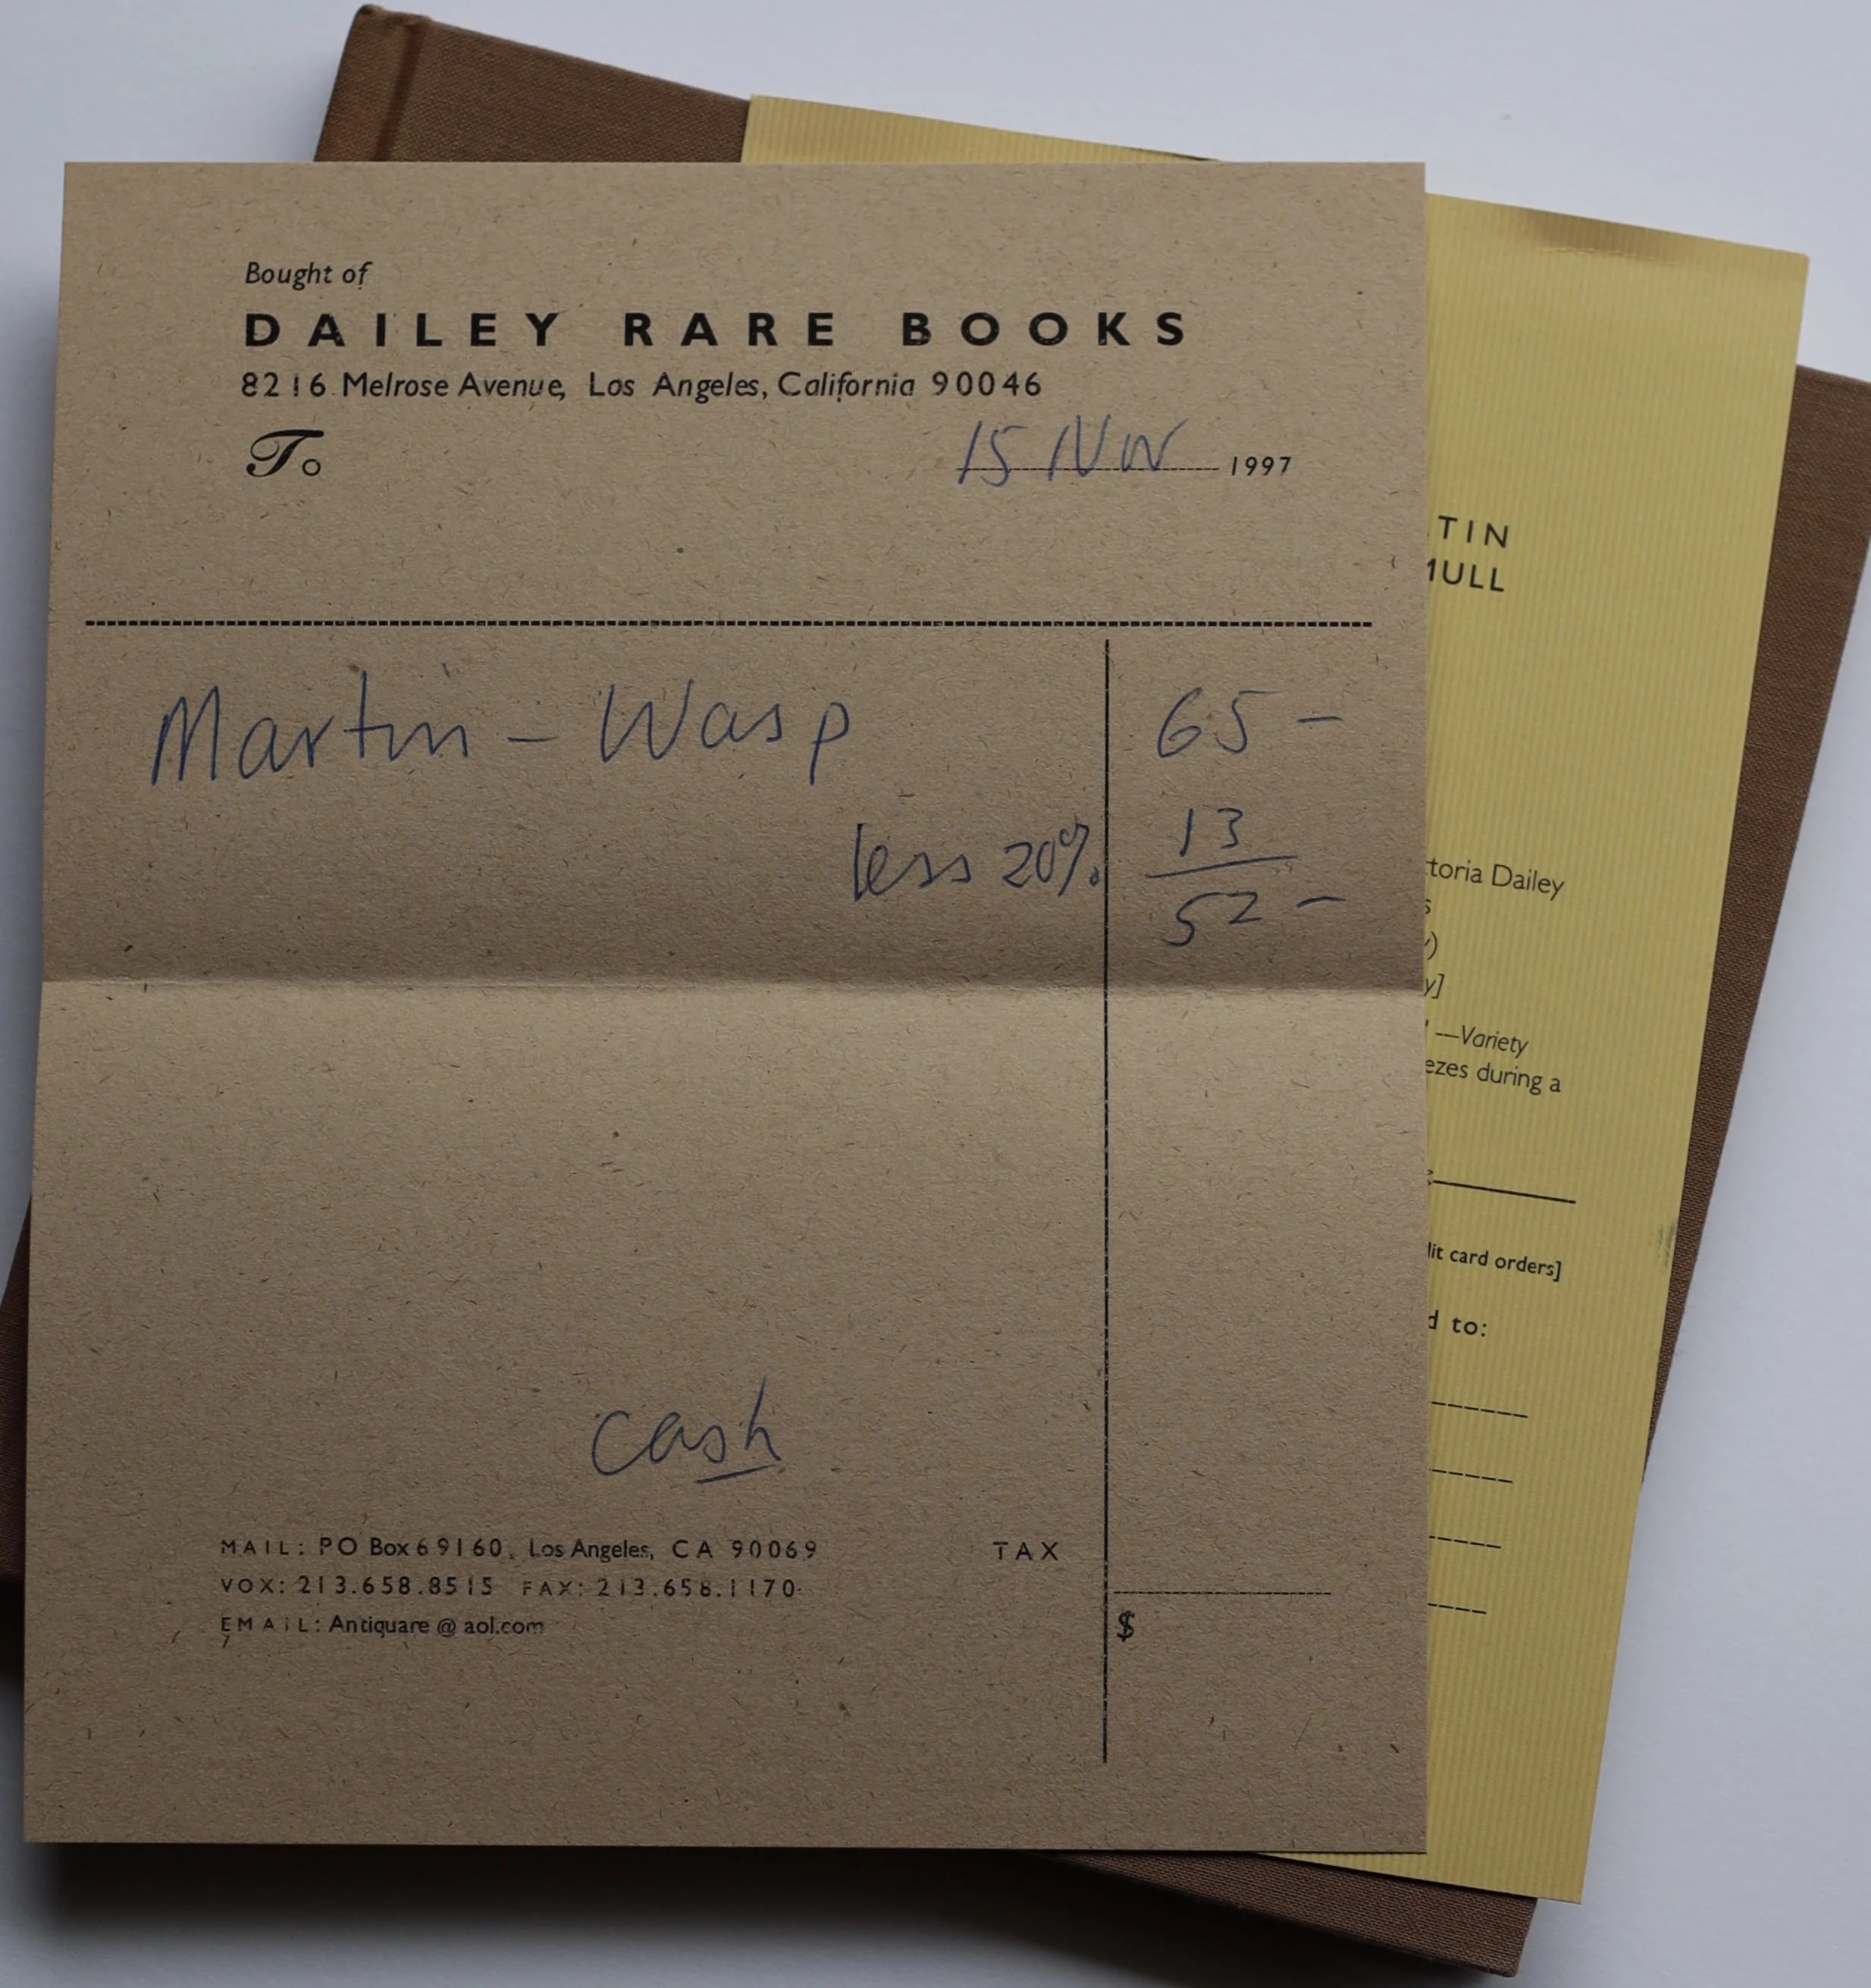 Bought of
DAILEY RARE BOOKS
8216 Melrose Avenue, Los Angeles, California 90046
To
15 Nov 1997
Martin - Wasp 65 -
less 20% 13
52 -
cash
MAIL: PO Box 69160, Los Angeles, CA 90069
TAX
VOX: 213.658.8515 FAX: 213.658.1170
EMAIL: Antiquare @ aol.com
$
TIN
MULL
toria Dailey
s
)
y]
—Variety
ezes during a
dit card orders]
d to: